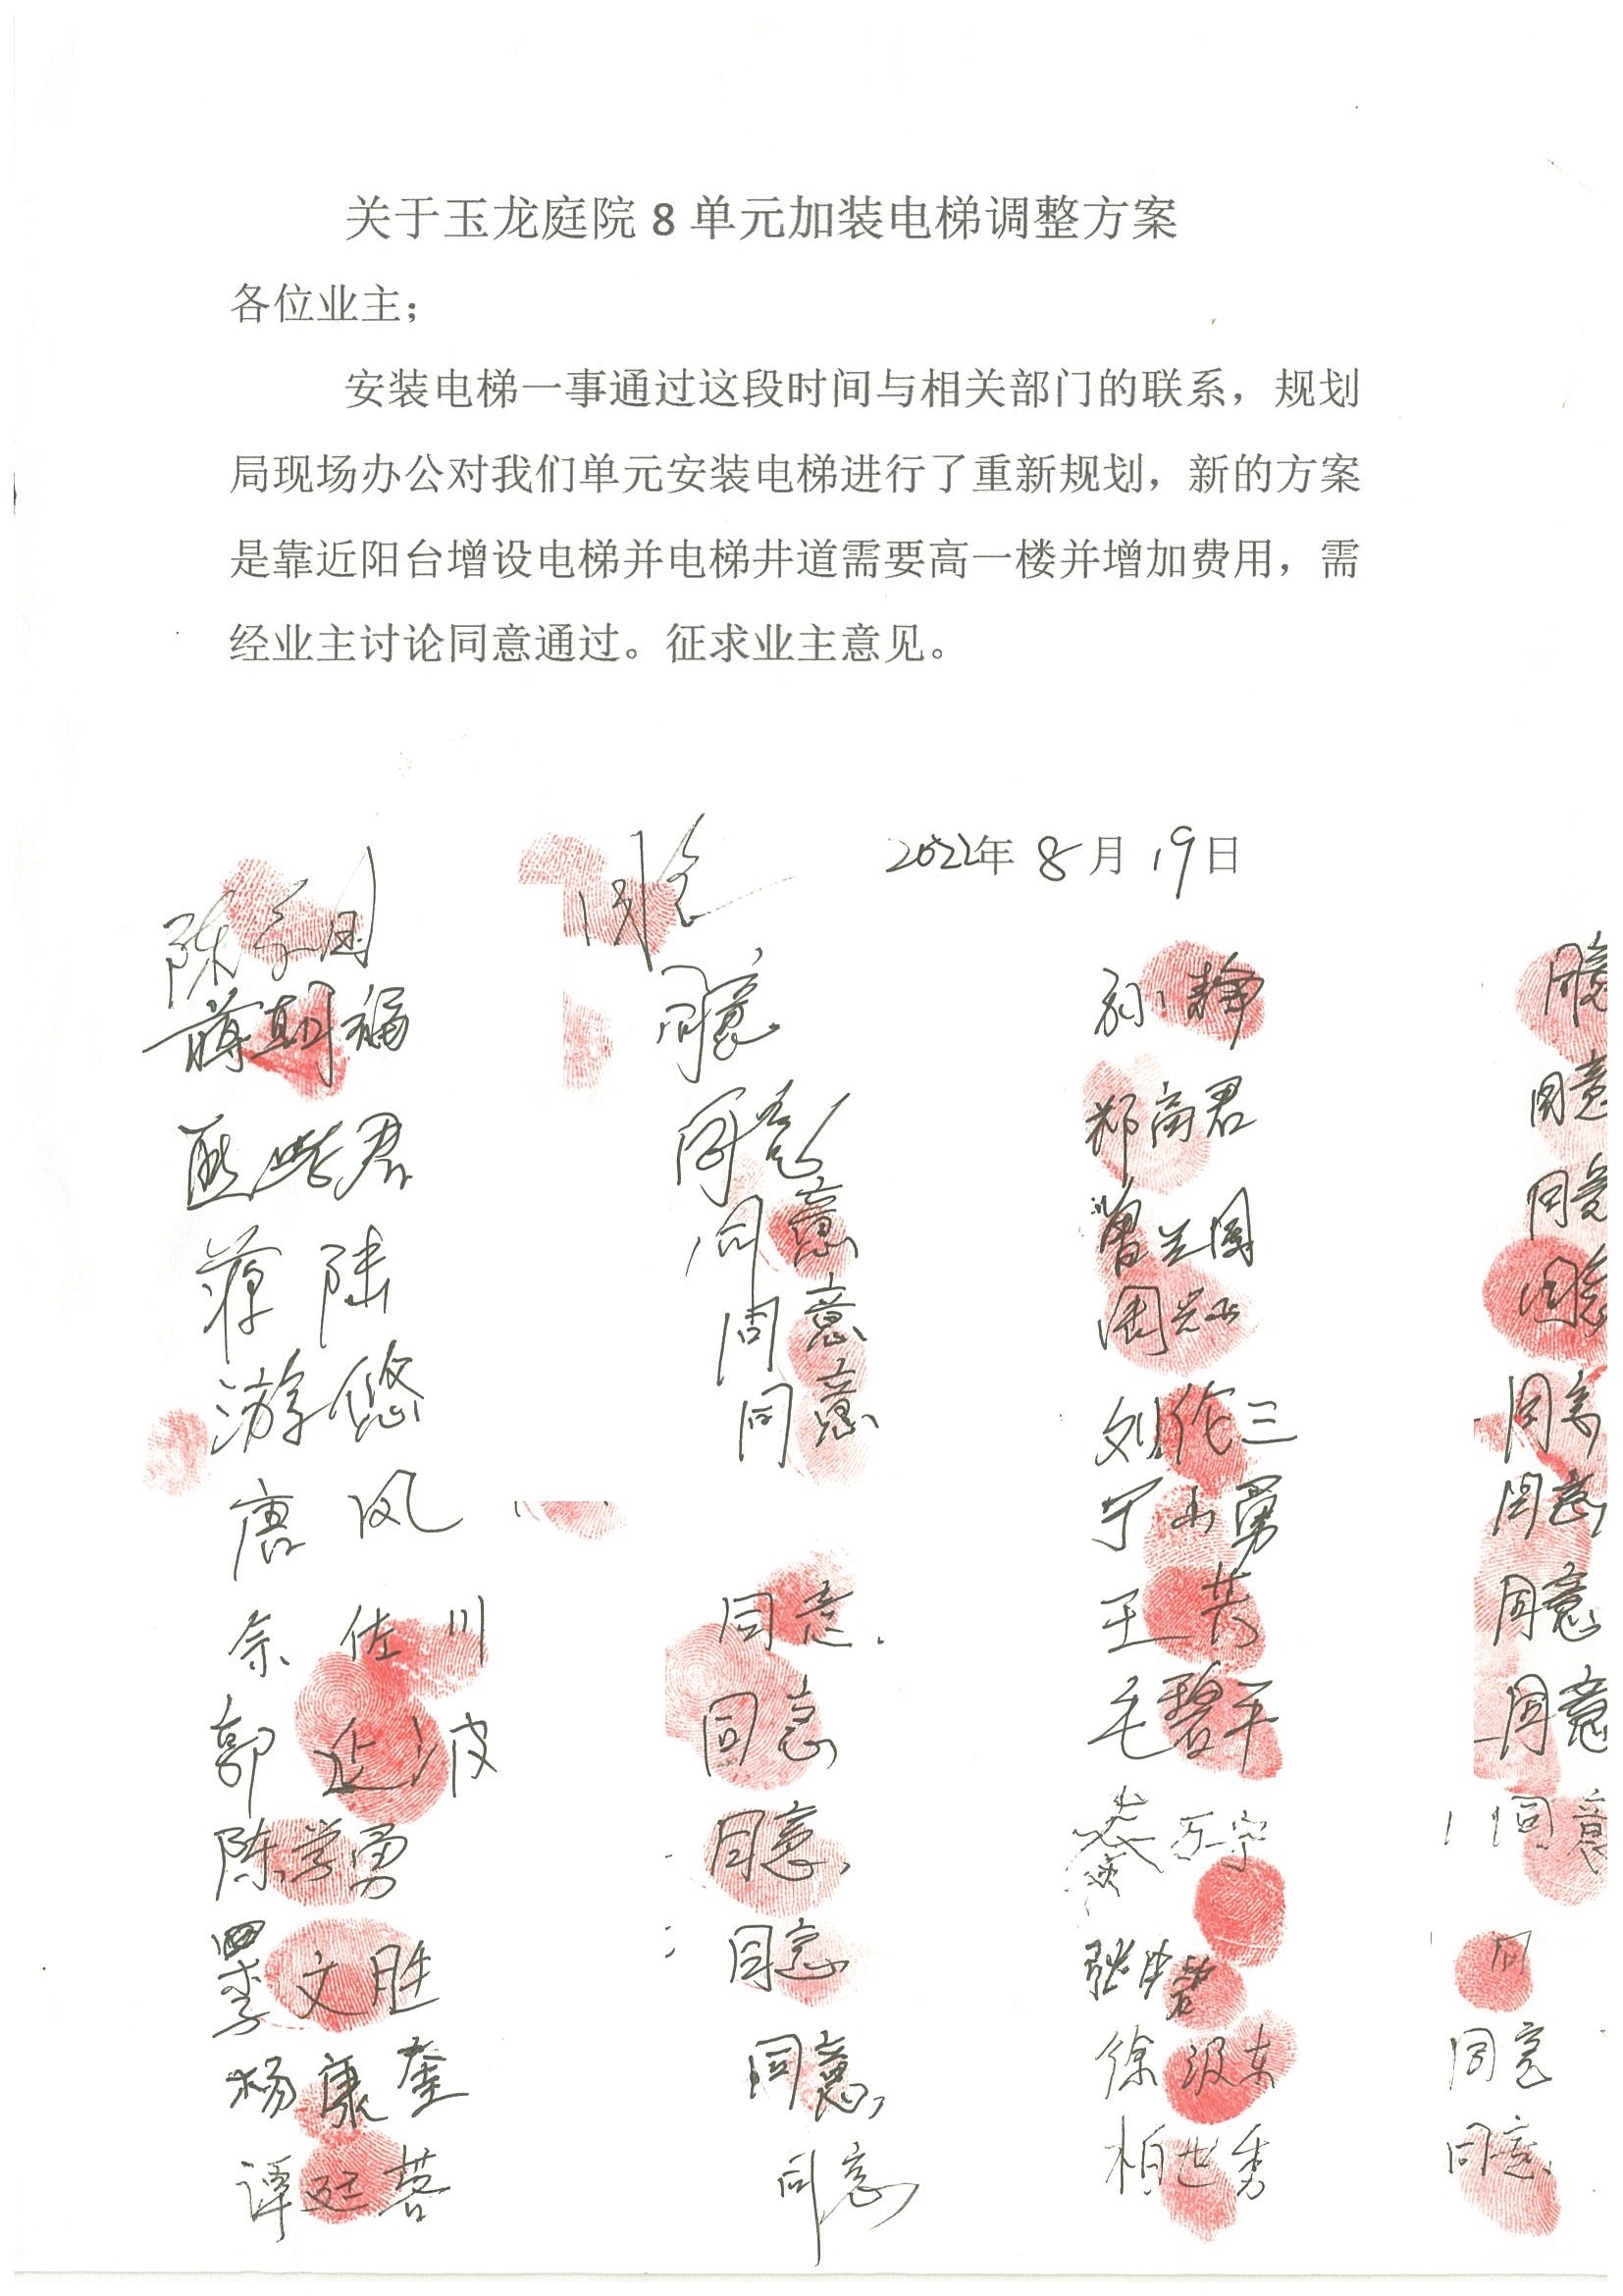 关于玉龙庭院 8 单元加装电梯调整方案
各位业主；
安装电梯一事通过这段时间与相关部门的联系，规划
局现场办公对我们单元安装电梯进行了重新规划，新的方案
是靠近阳台增设电梯并电梯井道需要高一楼并增加费用，需
经业主讨论同意通过。征求业主意见。
2022年 8月 19日
陈 同意
蒋朝福 同意 孙静 同意
君 同意 郑高君 同意
蒋陆 同意 曾兰国 同意
游悠 同意 周 同意
唐凤 同意 刘伦三 同意
宁小勇 同意
余佐川 同意 王 同意
郭延波 同意 毛碧平 同意
陈学勇 同意 万宁 同意
文胜 同意 张 同
杨康奎 同意 徐汲东 同意
谭廷蓉 同意 柏世秀 同意